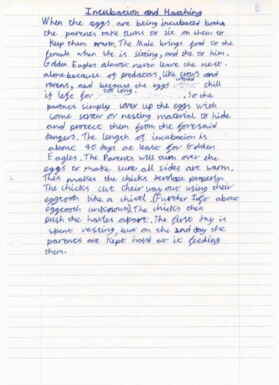 Incubation and Hatching
When the eggs are being incubated both
the parents take turns to sit on them to
keep them warm. The Male brings food to the
female when she is sitting, and she to him.
Golden Eagles almost never leave the nest
alone because of predators, like crows and
ravens, and because the eggs would chill
if left for too long. So the
parents simply cover up the eggs with
some cover or nesting material to hide
and protect them from the foresaid
dangers. The length of incubation is
about 40 days at least for Golden
Eagles. The Parents will turn over the
eggs to make sure all sides are warm.
This makes the chicks develope properly.
The chicks cut their way out using their
eggtooth like a chisel. (Further Info about
eggtooth unknown). The chicks then
push the halves apart. The first day is
spent resting, but on the 2nd day the
parents are kept hard at it feeding
them.